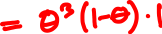 = θ³(1-θ)·1